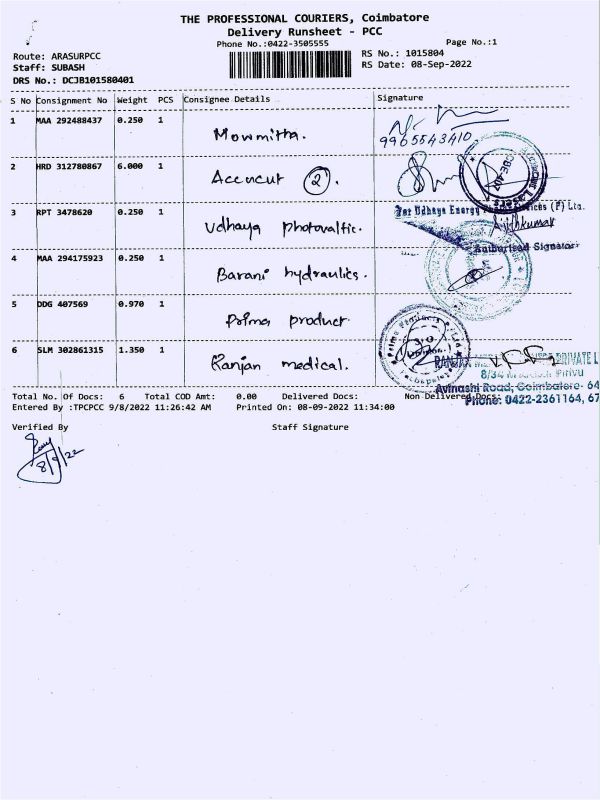 THE PROFESSIONAL COURIERS, Coimbatore
Delivery Runsheet - PCC
Phone No.:0422-3505555
Page No.:1
Route: ARASURPCC
RS No.: 1015804
Staff: SUBASH
RS Date: 08-Sep-2022
DRS No.: DCJB101580401
S No Consignment No Weight PCS Consignee Details Signature
1 MAA 292488437 0.250 1 Mowmitha.
9965543410
2 HRD 312780867 6.000 1 Accucut 2.
CBE-407
For Udhaya Energy (P) Ltd.
3 RPT 3478620 0.250 1 Udhaya photovaltic.
Ajithkumar
Authorised Signator
4 MAA 294175923 0.250 1 Barani hydraulics.
5 DDG 407569 0.970 1 Prima product
6 SLM 302861315 1.350 1 Ranjan medical.
RANJAN PRIVATE L
8/34
Avinashi Road, Coimbatore- 64
Phone: 0422-2361164, 67
Total No. Of Docs: 6 Total COD Amt: 0.00 Delivered Docs: Non Delivered Docs:
Entered By :TPCPCC 9/8/2022 11:26:42 AM Printed On: 08-09-2022 11:34:00
Verified By Staff Signature
8/9/22